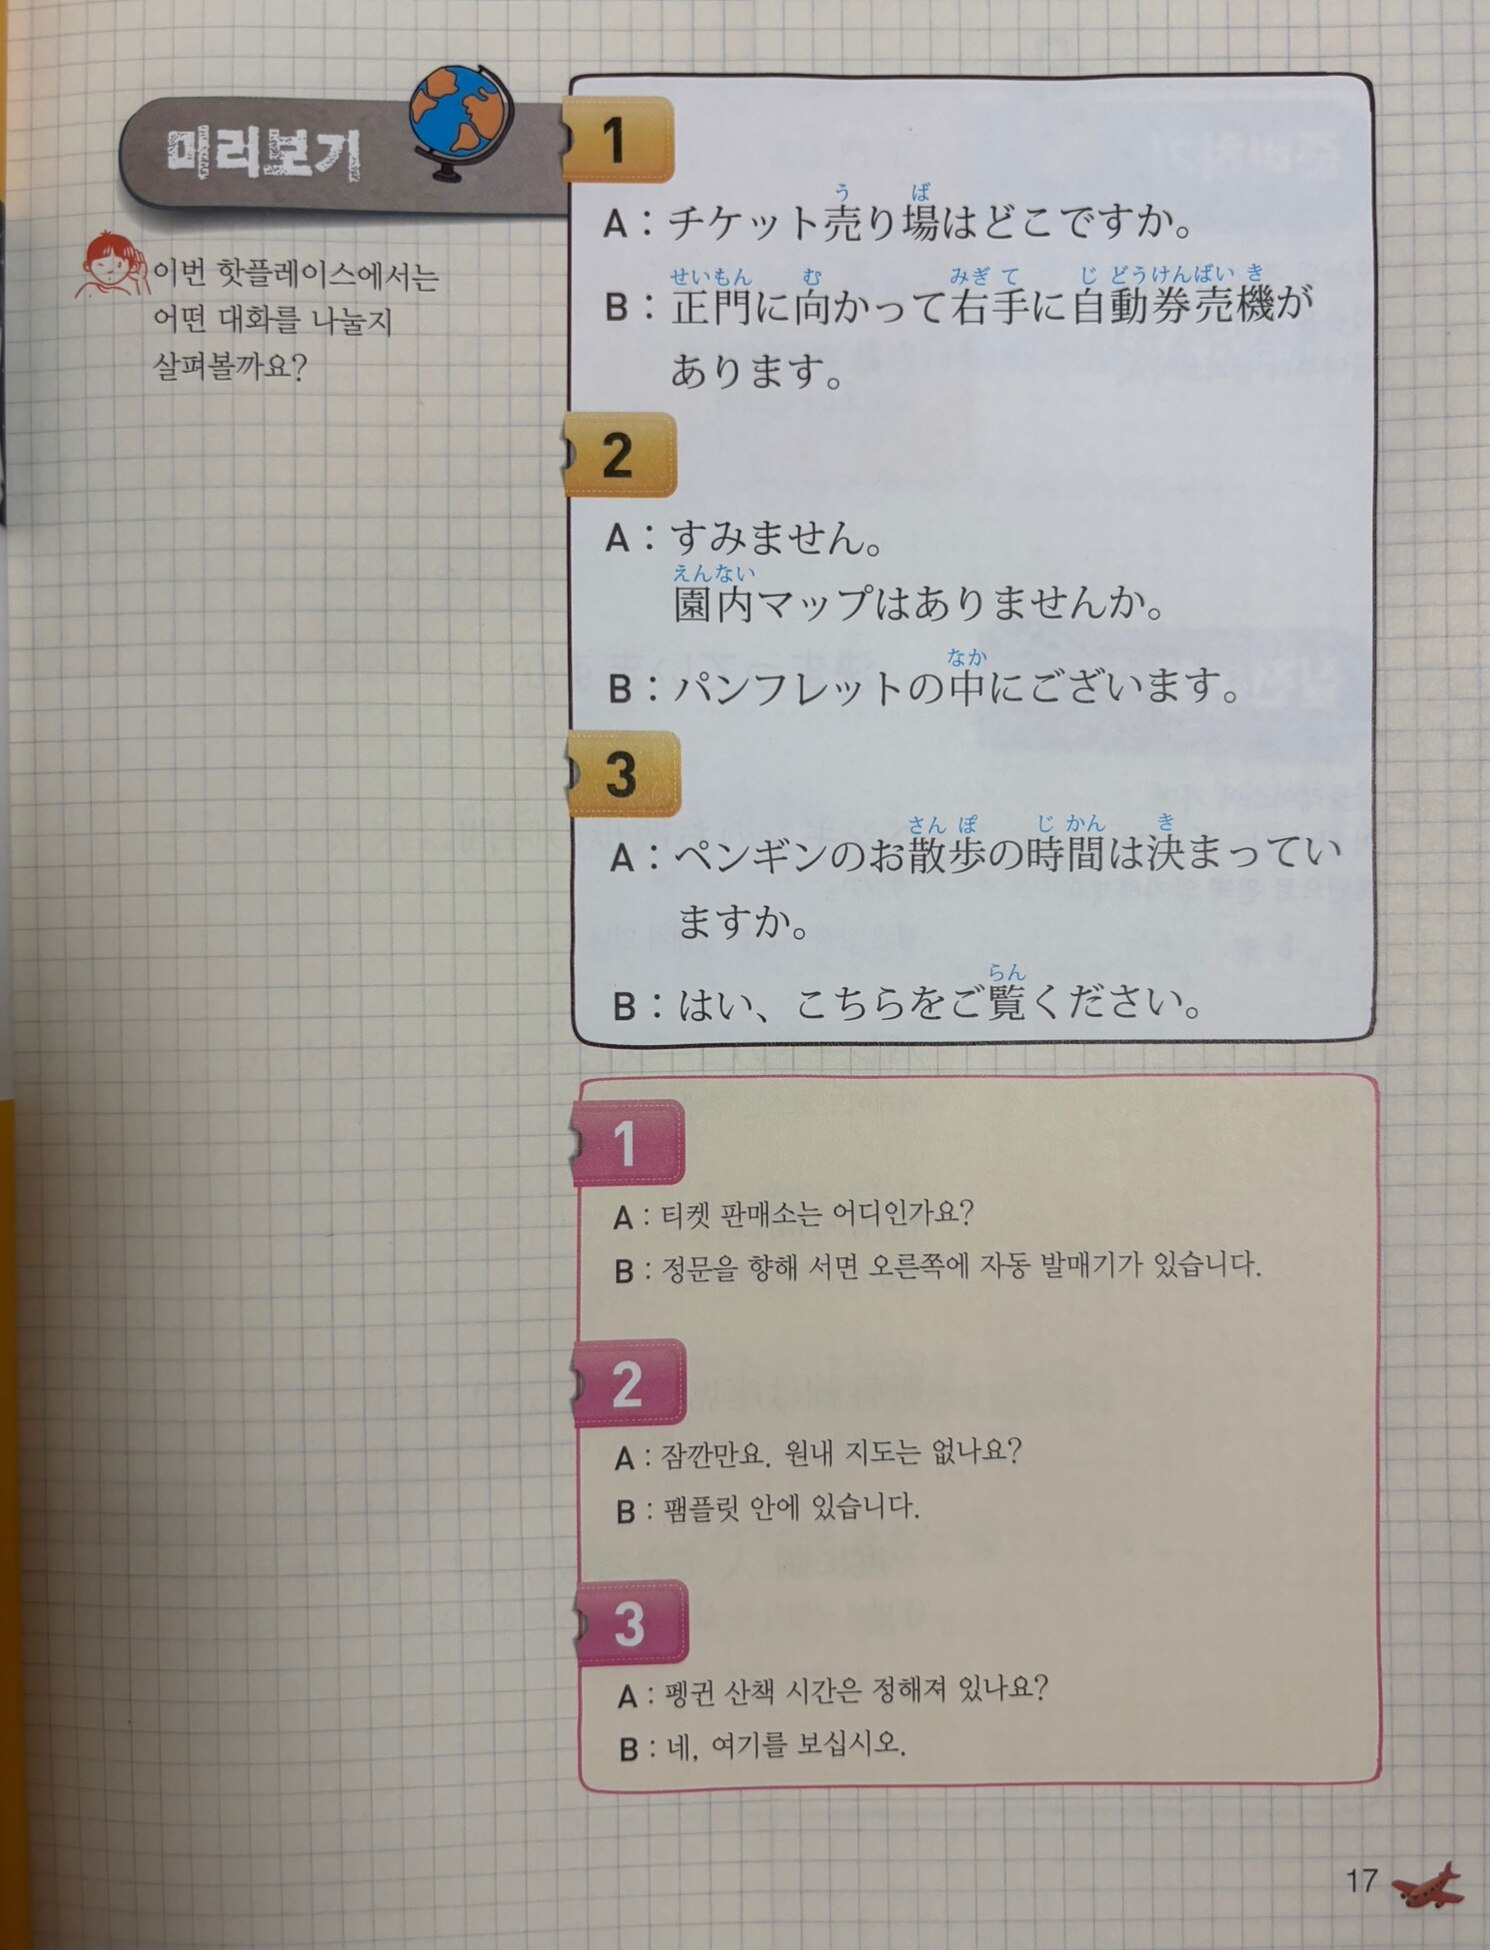 미리보기
이번 핫플레이스에서는
어떤 대화를 나눌지
살펴볼까요?
1
う ば
A : チケット売り場はどこですか。
せいもん む みぎ て じ どうけんばい き
B : 正門に向かって右手に自動券売機が
あります。
2
A : すみません。
えんない
園内マップはありませんか。
なか
B : パンフレットの中にございます。
3
さん ぽ じ かん き
A : ペンギンのお散歩の時間は決まってい
ますか。
らん
B : はい、こちらをご覧ください。
1
A : 티켓 판매소는 어디인가요?
B : 정문을 향해 서면 오른쪽에 자동 발매기가 있습니다.
2
A : 잠깐만요. 원내 지도는 없나요?
B : 팸플릿 안에 있습니다.
3
A : 펭귄 산책 시간은 정해져 있나요?
B : 네, 여기를 보십시오.
17